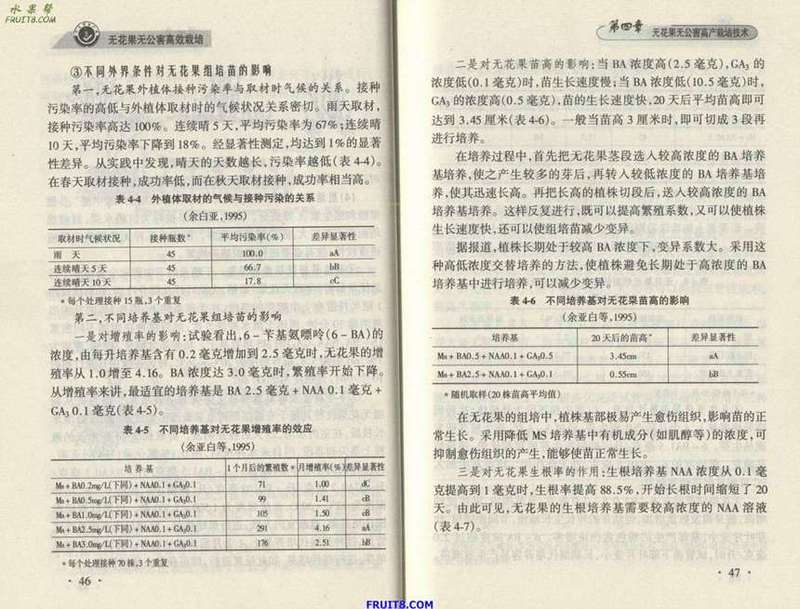 水果帮
FRUIT8.COM
无花果无公害高效栽培
③不同外界条件对无花果组培苗的影响
第一,无花果外植体接种污染率与取材时气候的关系。接种
污染率的高低与外植体取材时的气候状况关系密切。雨天取材,
接种污染率高达 100%。连续晴 5 天,平均污染率为 67%;连续晴
10 天,平均污染率下降到 18%。经显著性测定,均达到 1%的显著
性差异。从实践中发现,晴天的天数越长,污染率越低(表 4-4)。
在春天取材接种,成功率低,而在秋天取材接种,成功率相当高。
表 4-4 外植体取材的气候与接种污染的关系
(余白亚,1995)
取材时气候状况 接种瓶数* 平均污染率(%) 差异显著性
雨 天 45 100.0 aA
连续晴天 5 天 45 66.7 bB
连续晴天 10 天 45 17.8 cC
*每个处理接种 15 瓶,3 个重复
第二,不同培养基对无花果组培苗的影响
一是对增殖率的影响:试验看出,6-苄基氨嘌呤(6-BA)的
浓度,由每升培养基含有 0.2 毫克增加到 2.5 毫克时,无花果的增
殖率从 1.0 增至 4.16。BA 浓度达 3.0 毫克时,繁殖率开始下降。
从增殖率来讲,最适宜的培养基是 BA 2.5 毫克+NAA 0.1 毫克+
GA₃ 0.1 毫克(表 4-5)。
表 4-5 不同培养基对无花果增殖率的效应
(余亚白等,1995)
培 养 基 1 个月后的繁殖数* 月增殖率(%) 差异显著性
Ms+BA0.2mg/L(下同)+NAA0.1+GA₃0.1 71 1.00 dC
Ms+BA0.5mg/L(下同)+NAA0.1+GA₃0.1 99 1.41 cB
Ms+BA1.0mg/L(下同)+NAA0.1+GA₃0.1 105 1.50 cB
Ms+BA2.5mg/L(下同)+NAA0.1+GA₃0.1 291 4.16 aA
Ms+BA3.0mg/L(下同)+NAA0.1+GA₃0.1 176 2.51 bB
*每个处理接种 70 株,3 个重复
· 46 ·
第四章 无花果无公害高产栽培技术
二是对无花果苗高的影响:当 BA 浓度高(2.5 毫克),GA₃ 的
浓度低(0.1 毫克)时,苗生长速度慢;当 BA 浓度低(10.5 毫克)时,
GA₃ 的浓度高(0.5 毫克),苗的生长速度快,20 天后平均苗高即可
达到 3.45 厘米(表 4-6)。一般当苗高 3 厘米时,即可切成 3 段再
进行培养。
在培养过程中,首先把无花果茎段选入较高浓度的 BA 培养
基培养,使之产生较多的芽后,再转入较低浓度的 BA 培养基培
养,使其迅速长高。再把长高的植株切段后,送入较高浓度的 BA
培养基培养。这样反复进行,既可以提高繁殖系数,又可以使植株
生长速度快,还可以使组培苗减少变异。
据报道,植株长期处于较高 BA 浓度下,变异系数大。采用这
种高低浓度交替培养的方法,使植株避免长期处于高浓度的 BA
培养基中进行培养,可以减少变异。
表 4-6 不同培养基对无花果苗高的影响
(余亚白等,1995)
培养基 20 天后的苗高* 差异显著性
Ms+BA0.5+NAA0.1+GA₃0.5 3.45cm aA
Ms+BA2.5+NAA0.1+GA₃0.1 0.55cm bB
*随机取样(20 株苗高平均值)
在无花果的组培中,植株基部极易产生愈伤组织,影响苗的正
常生长。采用降低 MS 培养基中有机成分(如肌醇等)的浓度,可
抑制愈伤组织的产生,能够使苗正常生长。
三是对无花果生根率的作用:生根培养基 NAA 浓度从 0.1 毫
克提高到 1 毫克时,生根率提高 88.5%,开始长根时间缩短了 20
天。由此可见,无花果的生根培养基需要较高浓度的 NAA 溶液
(表 4-7)。
· 47 ·
FRUIT8.COM